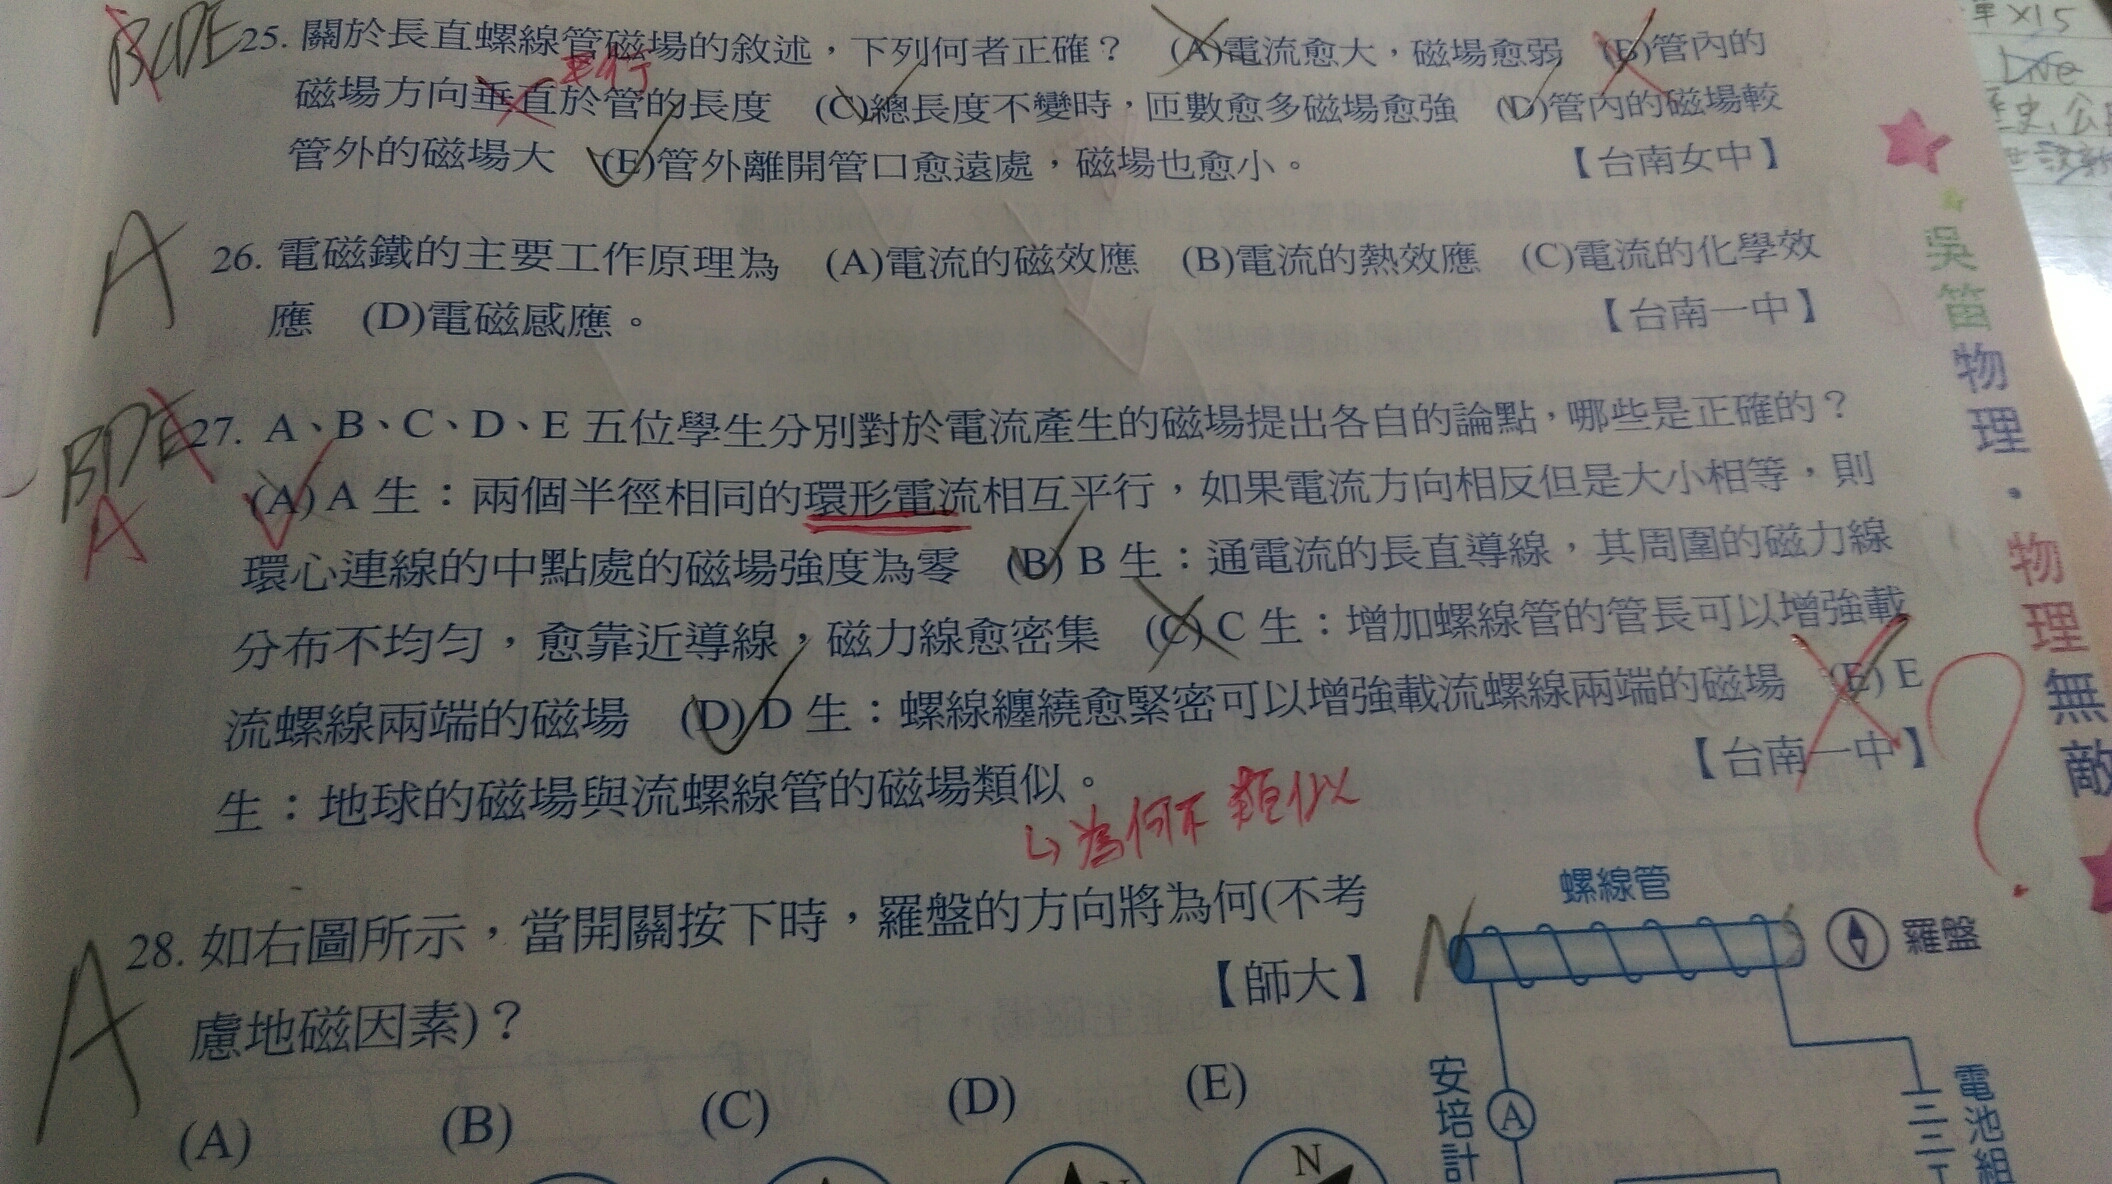 BCDE
25. 關於長直螺線管磁場的敘述，下列何者正確？ (A)電流愈大，磁場愈弱 (B)管內的
平行
磁場方向垂直於管的長度 (C)總長度不變時，匝數愈多磁場愈強 (D)管內的磁場較
管外的磁場大 (E)管外離開管口愈遠處，磁場也愈小。 【台南女中】
A
26. 電磁鐵的主要工作原理為 (A)電流的磁效應 (B)電流的熱效應 (C)電流的化學效
應 (D)電磁感應。 【台南一中】
BDE
A
27. A、B、C、D、E 五位學生分別對於電流產生的磁場提出各自的論點，哪些是正確的？
(A) A 生：兩個半徑相同的環形電流相互平行，如果電流方向相反但是大小相等，則
環心連線的中點處的磁場強度為零 (B) B 生：通電流的長直導線，其周圍的磁力線
分布不均勻，愈靠近導線，磁力線愈密集 (C) C 生：增加螺線管的管長可以增強載
流螺線兩端的磁場 (D) D 生：螺線纏繞愈緊密可以增強載流螺線兩端的磁場 (E) E
生：地球的磁場與流螺線管的磁場類似。 【台南一中】
↳為何不類似
?
A
28. 如右圖所示，當開關按下時，羅盤的方向將為何(不考
慮地磁因素)？ 【師大】
(A) (B) (C) (D) (E)
N
螺線管
N
羅盤
安培計
A
電池組
吳笛物理·物理無敵
單×15